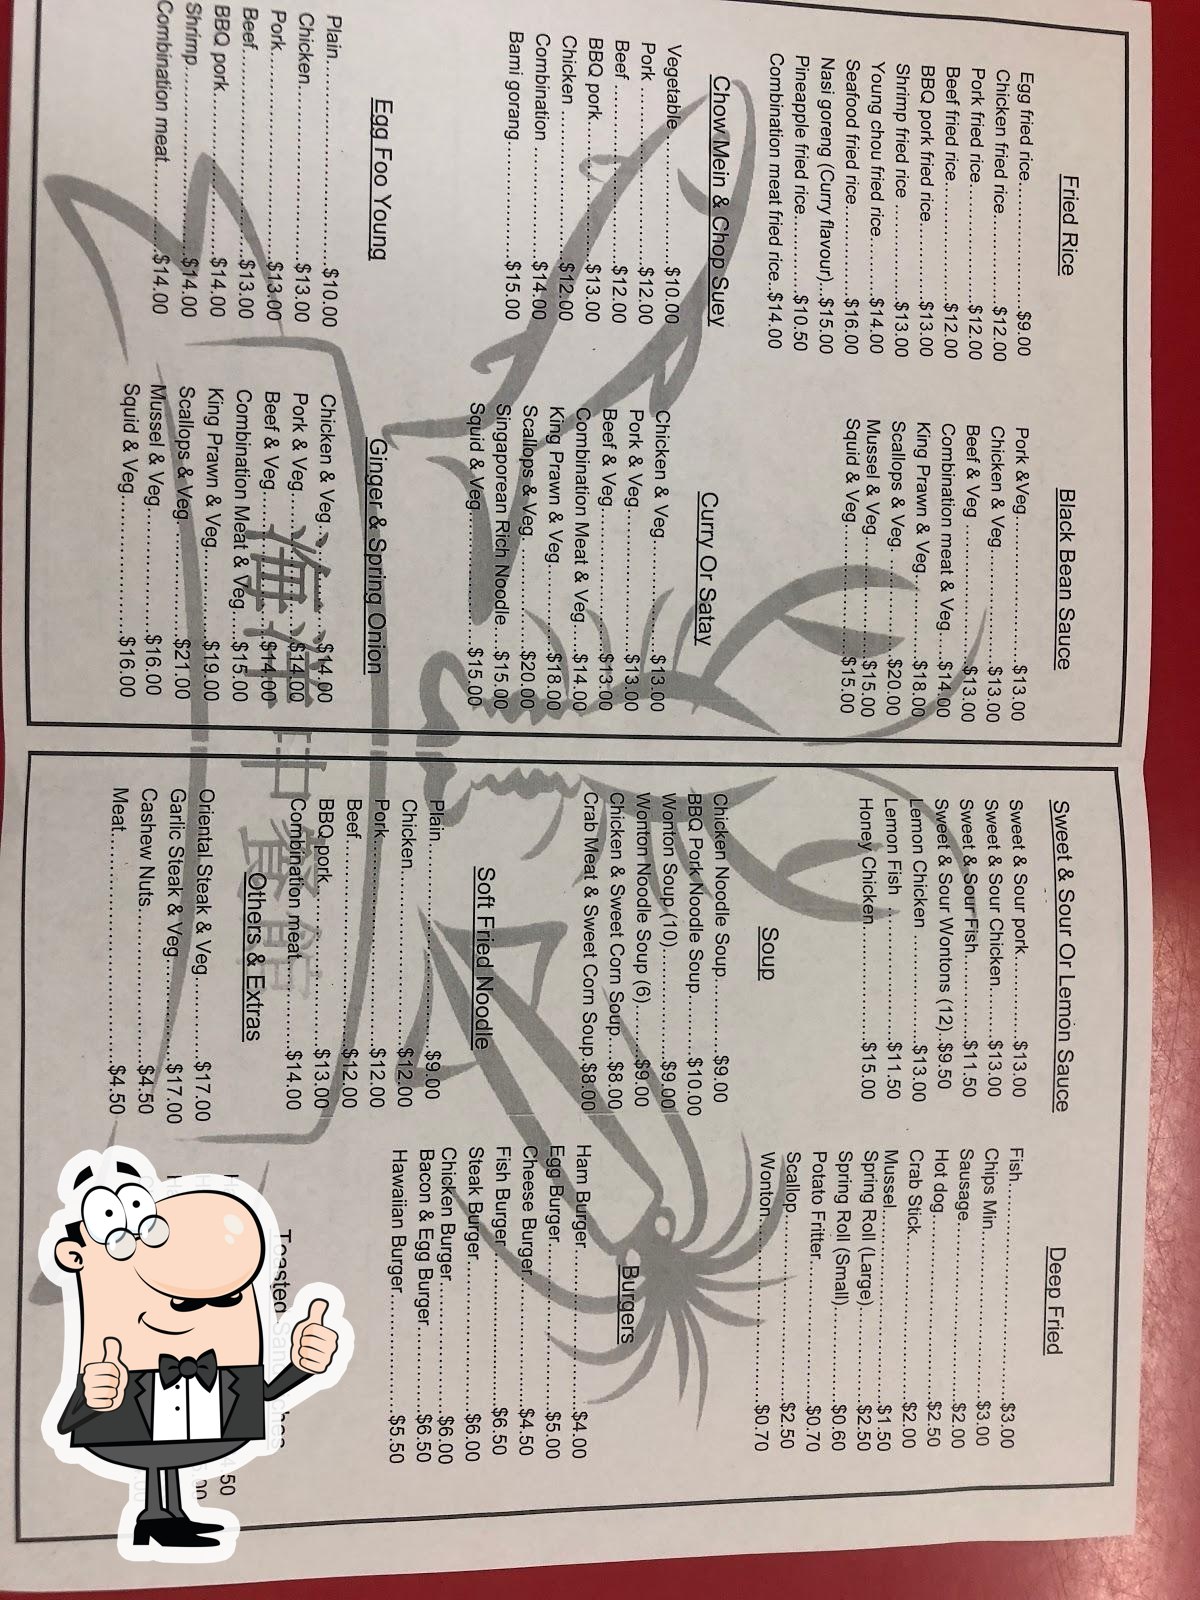 Fried Rice
Egg fried rice..................$9.00
Chicken fried rice...............$12.00
Pork fried rice..................$12.00
Beef fried rice..................$12.00
BBQ pork fried rice..........$13.00
Shrimp fried rice ..............$13.00
Young chou fried rice........$14.00
Seafood fried rice............$16.00
Nasi goreng (Curry flavour)...$15.00
Pineapple fried rice...........$10.50
Combination meat fried rice..$14.00
Chow Mein & Chop Suey
Vegetable.....................$10.00
Pork ..........................$12.00
Beef ..........................$12.00
BBQ pork.....................$13.00
Chicken ......................$12.00
Combination .................$14.00
Bami gorang..................$15.00
Egg Foo Young
Plain............................$10.00
Chicken........................$13.00
Pork.............................$13.00
Beef.............................$13.00
BBQ pork......................$14.00
Shrimp.........................$14.00
Combination meat...........$14.00
Black Bean Sauce
Pork &Veg.....................$13.00
Chicken & Veg...............$13.00
Beef & Veg ...................$13.00
Combination meat & Veg ...$14.00
King Prawn & Veg...........$18.00
Scallops & Veg ..............$20.00
Mussel & Veg ................$15.00
Squid & Veg..................$15.00
Curry Or Satay
Chicken & Veg...............$13.00
Pork & Veg....................$13.00
Beef & Veg....................$13.00
Combination Meat & Veg ....$14.00
King Prawn & Veg...........$18.00
Scallops & Veg...............$20.00
Singaporean Rich Noodle....$15.00
Squid & Veg..................$15.00
Ginger & Spring Onion
Chicken & Veg...............$14.00
Pork & Veg....................$14.00
Beef & Veg....................$14.00
Combination Meat & Veg ....$15.00
King Prawn & Veg ..........$19.00
Scallops & Veg...............$21.00
Mussel & Veg.................$16.00
Squid & Veg..................$16.00
海洋中餐館
Sweet & Sour Or Lemon Sauce
Sweet & Sour pork ............$13.00
Sweet & Sour Chicken......$13.00
Sweet & Sour Fish...........$11.50
Sweet & Sour Wontons (12)..$9.50
Lemon Chicken ..............$13.00
Lemon Fish ...................$11.50
Honey Chicken...............$15.00
Soup
Chicken Noodle Soup.........$9.00
BBQ Pork Noodle Soup.......$10.00
Wonton Soup (10).............$9.00
Wonton Noodle Soup (6).....$9.00
Chicken & Sweet Corn Soup....$8.00
Crab Meat & Sweet Corn Soup.$8.00
Soft Fried Noodle
Plain............................$9.00
Chicken.........................$12.00
Pork.............................$12.00
Beef.............................$12.00
BBQ pork......................$13.00
Combination meat...........$14.00
Others & Extras
Oriental Steak & Veg.........$17.00
Garlic Steak & Veg...........$17.00
Cashew Nuts..................$4.50
Meat.............................$4.50
Deep Fried
Fish.............................$3.00
Chips Min......................$3.00
Sausage........................$2.00
Hot dog.........................$2.50
Crab Stick......................$2.00
Mussel..........................$1.50
Spring Roll (Large)...........$2.50
Spring Roll (Small)...........$0.60
Potato Fritter..................$0.70
Scallop.........................$2.50
Wonton.........................$0.70
Burgers
Ham Burger....................$4.00
Egg Burger.....................$5.00
Cheese Burger................$4.50
Fish Burger....................$6.50
Steak Burger...................$6.00
Chicken Burger................$6.00
Bacon & Egg Burger..........$6.50
Hawaiian Burger..............$5.50
Toasted